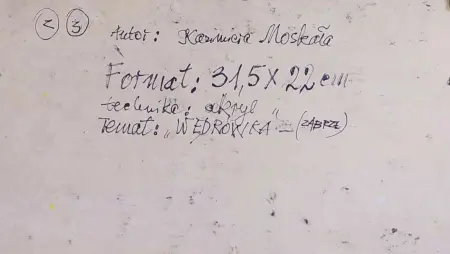 2 3
Autor: Kazimiera Moskała
Format: 31,5 X 22 cm
technika: akryl
Temat: „WĘDRÓWKA" = (ZABRZE)